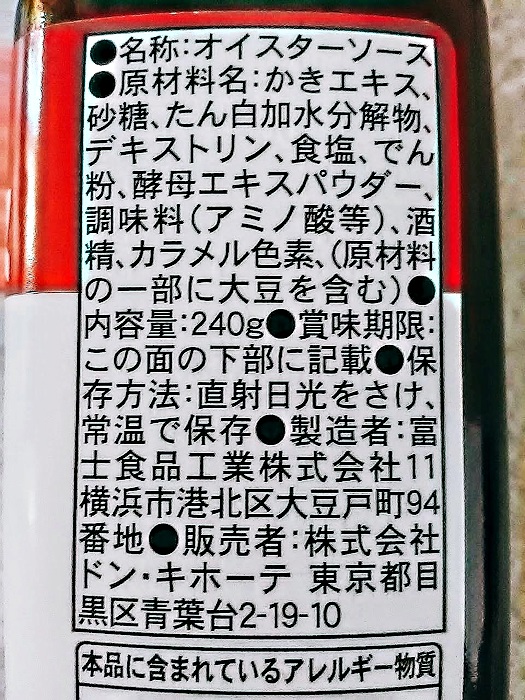 ●名称:オイスターソース
●原材料名:かきエキス、
砂糖、たん白加水分解物、
デキストリン、食塩、でん
粉、酵母エキスパウダー、
調味料(アミノ酸等)、酒
精、カラメル色素、(原材料
の一部に大豆を含む)●
内容量:240g●賞味期限:
この面の下部に記載●保
存方法:直射日光をさけ、
常温で保存●製造者:富
士食品工業株式会社11
横浜市港北区大豆戸町94
番地●販売者:株式会社
ドン・キホーテ 東京都目
黒区青葉台2-19-10
本品に含まれているアレルギー物質